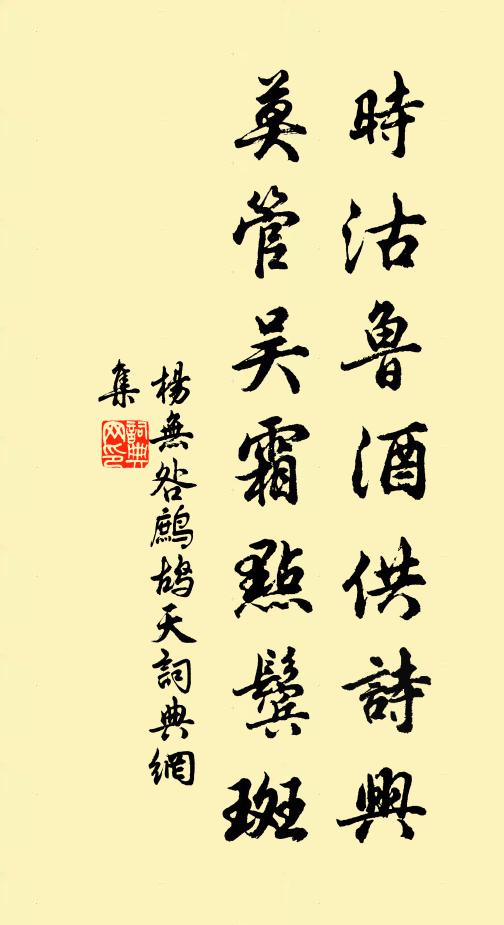 時沽魯酒供詩興
莫管吳霜點鬢斑
楊無咎鷓鴣天詞典網
集
詞典
网印